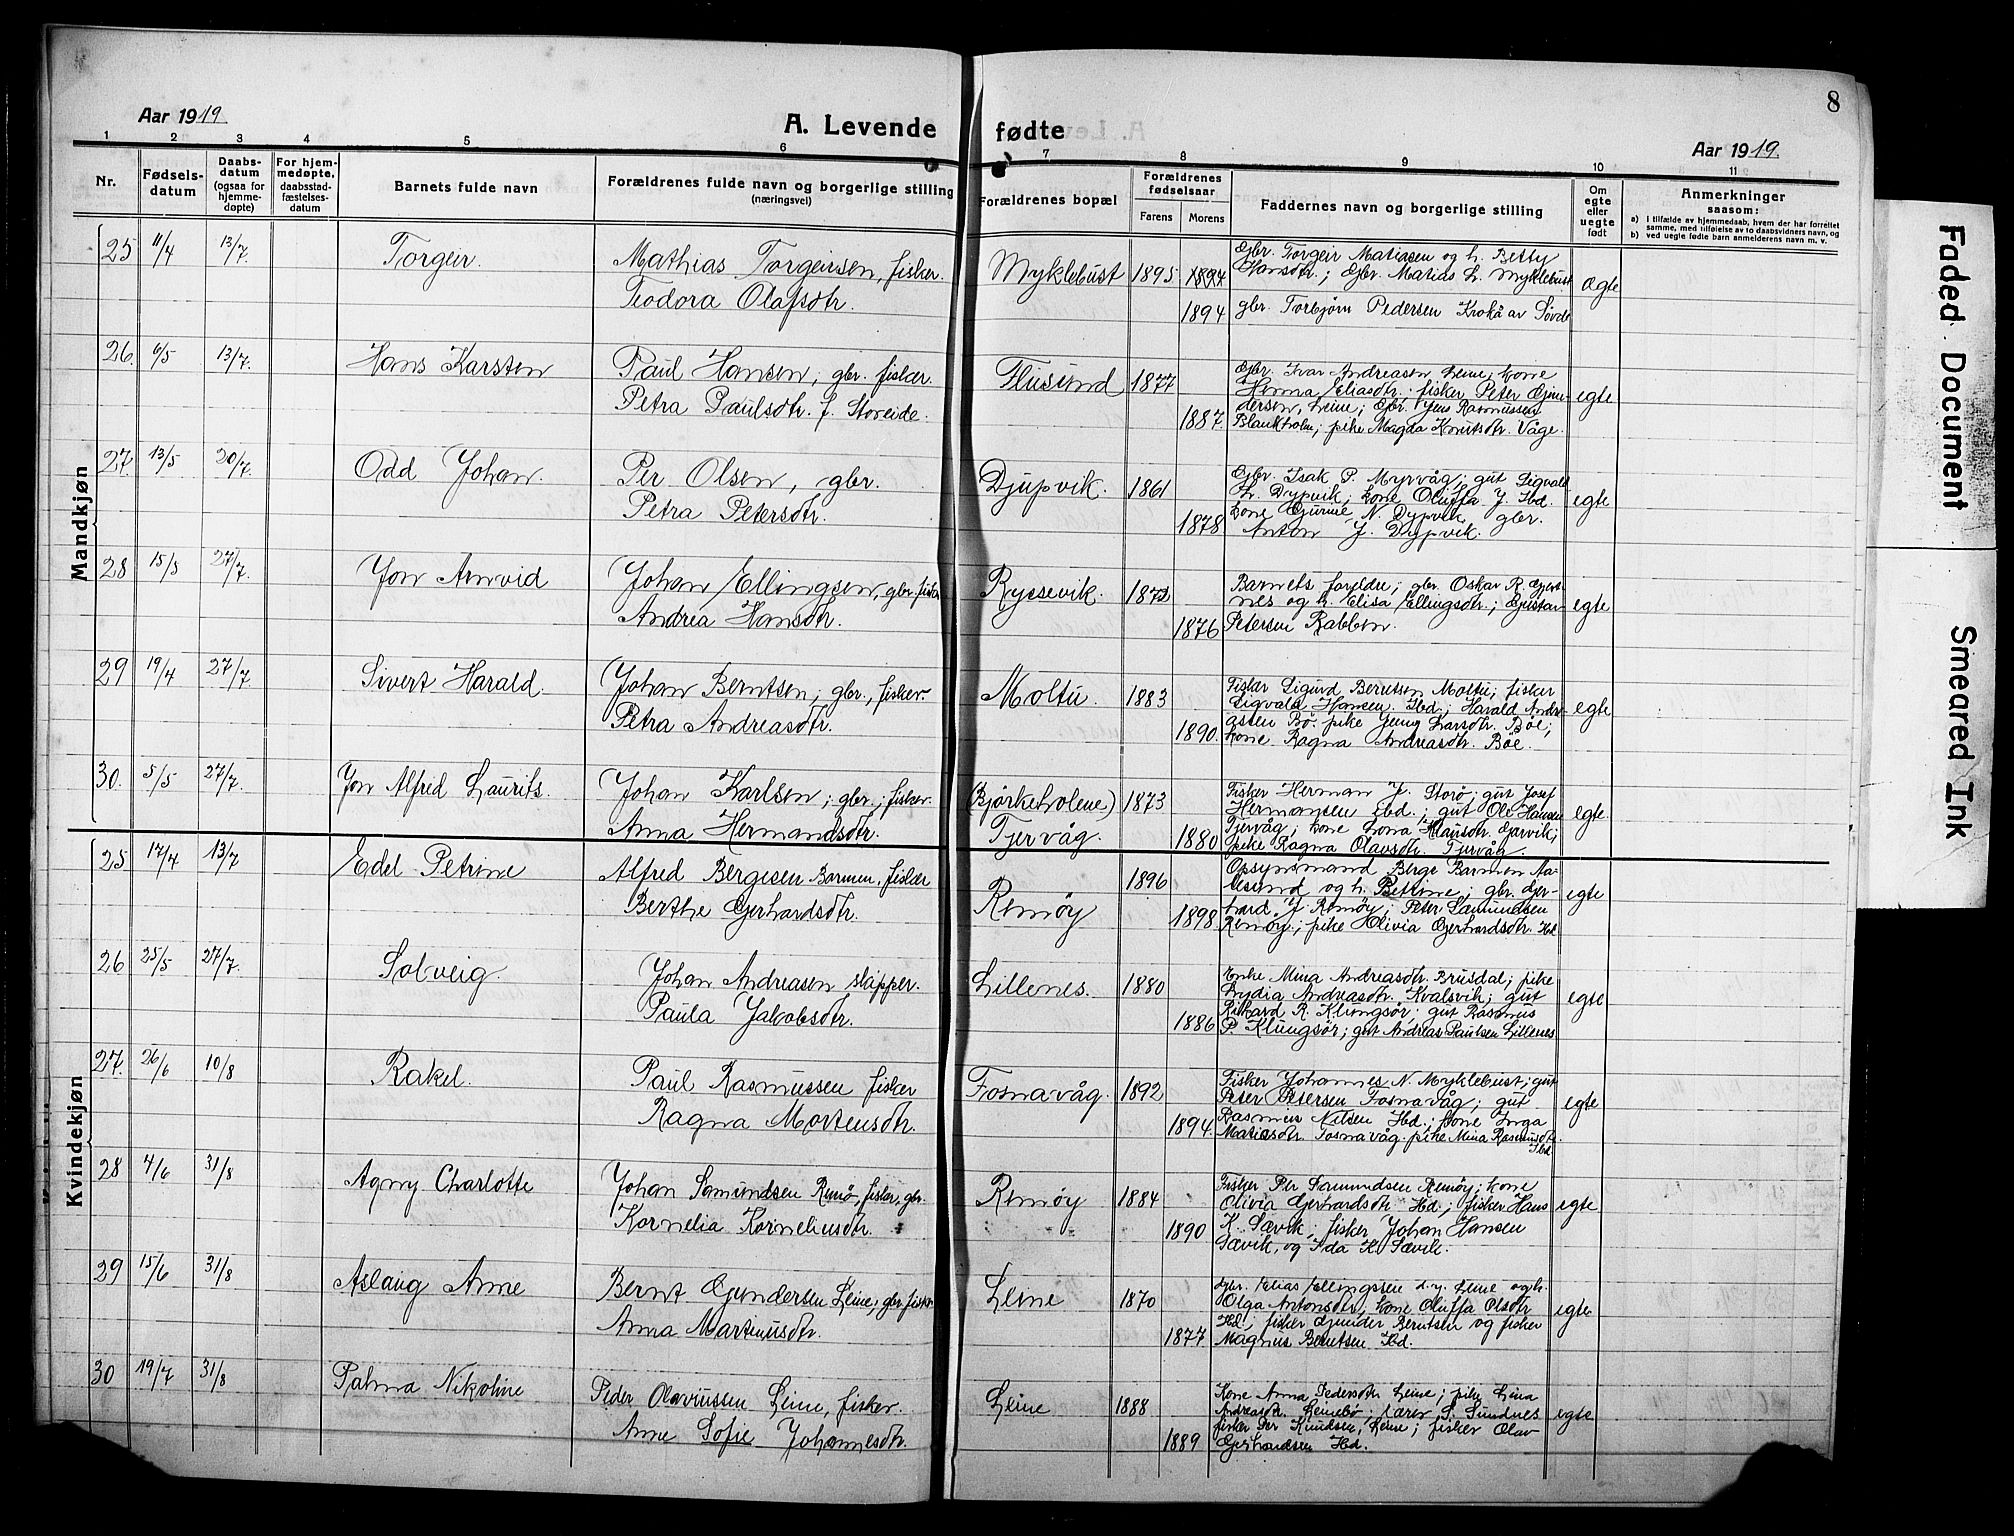 8
Aar 1919.
A. Levende fødte
Aar 1919.
1 2 3 4 5 6 7 8 9 10 11
Nr.
Fødsels-
datum
Daabs-
datum
(ogsaa for
hjemme-
døpte)
For hjem-
medøpte,
daabsstad-
fæstelses-
datum
Barnets fulde navn
Forældrenes fulde navn og borgerlige stilling
(næringsvei)
Forældrenes bopæl
Forældrenes
fødselsaar
Farens Morens
Faddernes navn og borgerlige stilling
Om
egte
eller
uegte
født
Anmerkninger
saasom:
a) I tilfælde av hjemmedaab, hvem der har forrettet
samme, med tilføielse av to daabsvidners navn, og
b) ved uegte fødte barn anmelderens navn m. v.
Mandkjøn
25 11/4 13/7 Torgeir Mathias Torgeirsen, fisker Myklebust 1895 1894 ægte
Teodora Olafsdtr. 1894
Gbr. Torgeir Matiasen og h. Betty
Hansdtr.; Gbr. Matias L. Myklebust
gbr. Torbjørn Pedersen Krokå av Søvde
26. 6/5 13/7. Hans Karsten Paul Hansen, gbr. fisker. Flusund 1877 egte
Petra Paulsdtr. f. Storeide. 1887.
Gbr. Ivar Andreasen Leine; kone
Hanna Eliasdtr.; fisker Peter Gjen-
dersen, Leine; Gbr. Jens Rasmussen
Blankholm; pike Magda Knutsdtr. Våge.
27. 13/5 20/7. Odd Johan. Per Olsen, gbr. Djupvik. 1861 egte
Petra Petersdtr. 1878
Gbr. Isak P. Myrvåg; gut Sigvald
L. Dypvik; kone Oluffa J. Ibd.
kone Gurine N. Dypvik gbr.
Anton J. Dypvik.
28 15/5 27/7. Jon Arnvid Johan Ellingsen, gbr. fisker Ryssevik. 1872 egte
Andrea Hansdtr. 1876
Barnets foreldre; gbr. Oskar R. Gjerts-
nes og h. Elisa Ellingsdtr.; Gustav
Petersen Rabben.
29 19/4 27/7. Sivert Harald. Johan Berntsen; gbr., fisker- Moltu. 1883 egte
Petra Andreasdtr. 1890.
Fisker Sigurd Berntsen Moltu; fisker
Sigvald Hansen Ibd; Harald Andre-
assen Bø. pike Jenny Larsdtr. Bøe;
kone Ragna Andreasdtr. Bøe.
30. 5/5 27/7. Jon Alfred Laurits. Johan Karlsen; gbr.; fisker. (Bjørkeholene) 1873 egte
Anna Hermansdtr. Tjervåg. 1880
Fisker Herman J. Storø; gut Josef
Hermansen Ibd.; gut Ole Hansen
Tjervåg; kone Lovise Klausdtr. Gjervik;
pike Ragna Olavsdtr. Tjervåg.
Kvindekjøn
25 17/4 13/7 Edel Petrine Alfred Bergesen Barmen, fisker Remøy 1896 egte
Berthe Gerhardsdtr. 1898
Opsynsmand Berge Barmen Aa-
lesund og h. Betline; gbr. Ger-
hard J. Remøy; Peter Sæmundsen
Remøy; pike Olivia Gerhardsdtr. Ibd
26 25/5 27/7. Solveig. Johan Andreasen skipper. Lillenes. 1880 egte
Paula Jakobsdtr. 1886
Enke Mina Andreasdtr. Brusdal; pike
Lydia Andreasdtr. Kvalsvik; gut
Rikard R. Klungsør; gut Rasmus
P. Klungsør; gut Andreas Paulsen Lillenes
27. 26/6 10/8 Rakel. Paul Rasmussen fisker Fosnavåg. 1892 egte
Ragna Mortensdtr. 1894
Fisker Johannes N. Myklebust; gut
Peter Petersen Fosnavåg; gut
Rasmus Nilsen Ibd.; kone Inga
Matiasdtr. Fosnavåg. pike Mina Rasmusdtr.
Ibd
28 4/6 31/8 Agny Charlotte Johan Samundsen Remø, fisker, gbr. Remøy 1884 egte
Kornelia Korneliusdtr. 1890
Fisker Per Samundsen Remøy; kone
Olivia Gerhardsdtr. Ibd.; fisker Hans
K. Sævik, fisker Johan Hansen
Sævik, og Ida K. Sævik.
29 15/6 31/8 Aslaug Anne Bernt Gundersen Leine; gbr. fisker Leine 1870 egte
Anna Martinusdtr. 1877
Gbr. Elias Ellingssen d.y. Leine og h.
Olga Antonsdtr.; kone Oluffa Olsdtr
Ibd; fisker Gunder Berntsen og fisker
Magnus Berntsen Ibd.
30 19/7 31/8 Palma Nikoline Peder Olavussen Leine, fisker. Leine 1888 egte
Anne Sofie Johannesdtr. 1889
Kone Anna Pedersdtr. Leine; pike Lina
Andreasdtr. Leinebø; lærer S. Sundnes
fisker Per Knudsen, Leine; fisker Olav
Gerhardsen Ibd.
Faded Document
Smeared Ink